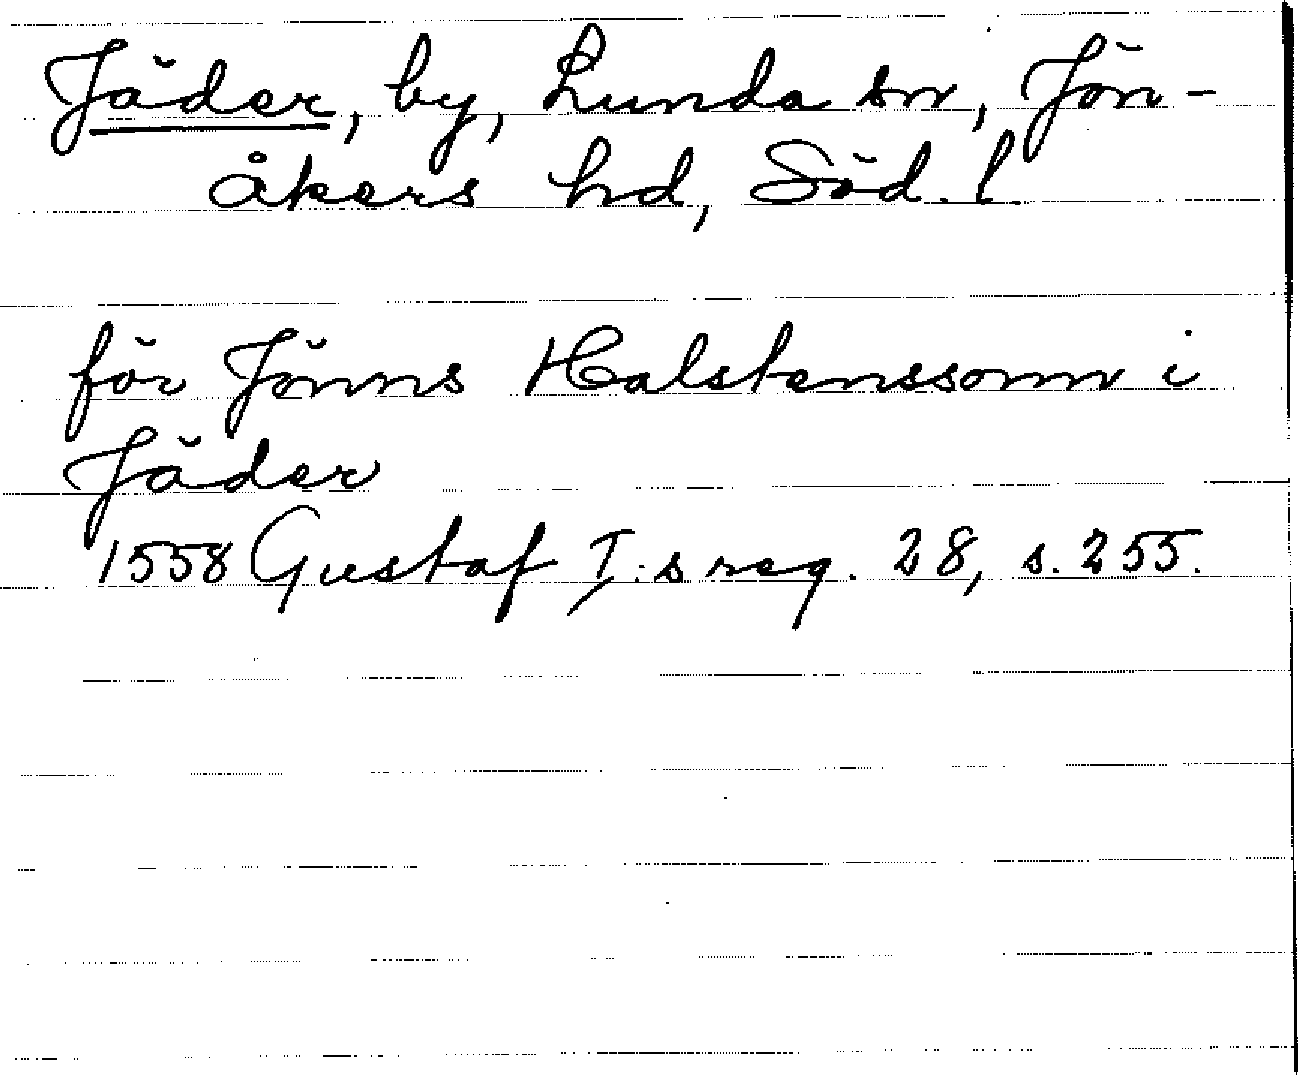 Jäder, by, Lunda sn, Jön-
åkers hd, Söd. l.
för Jönns Halstenssonn i
Jäder
1558 Gustaf I:s reg. 28, s. 255.